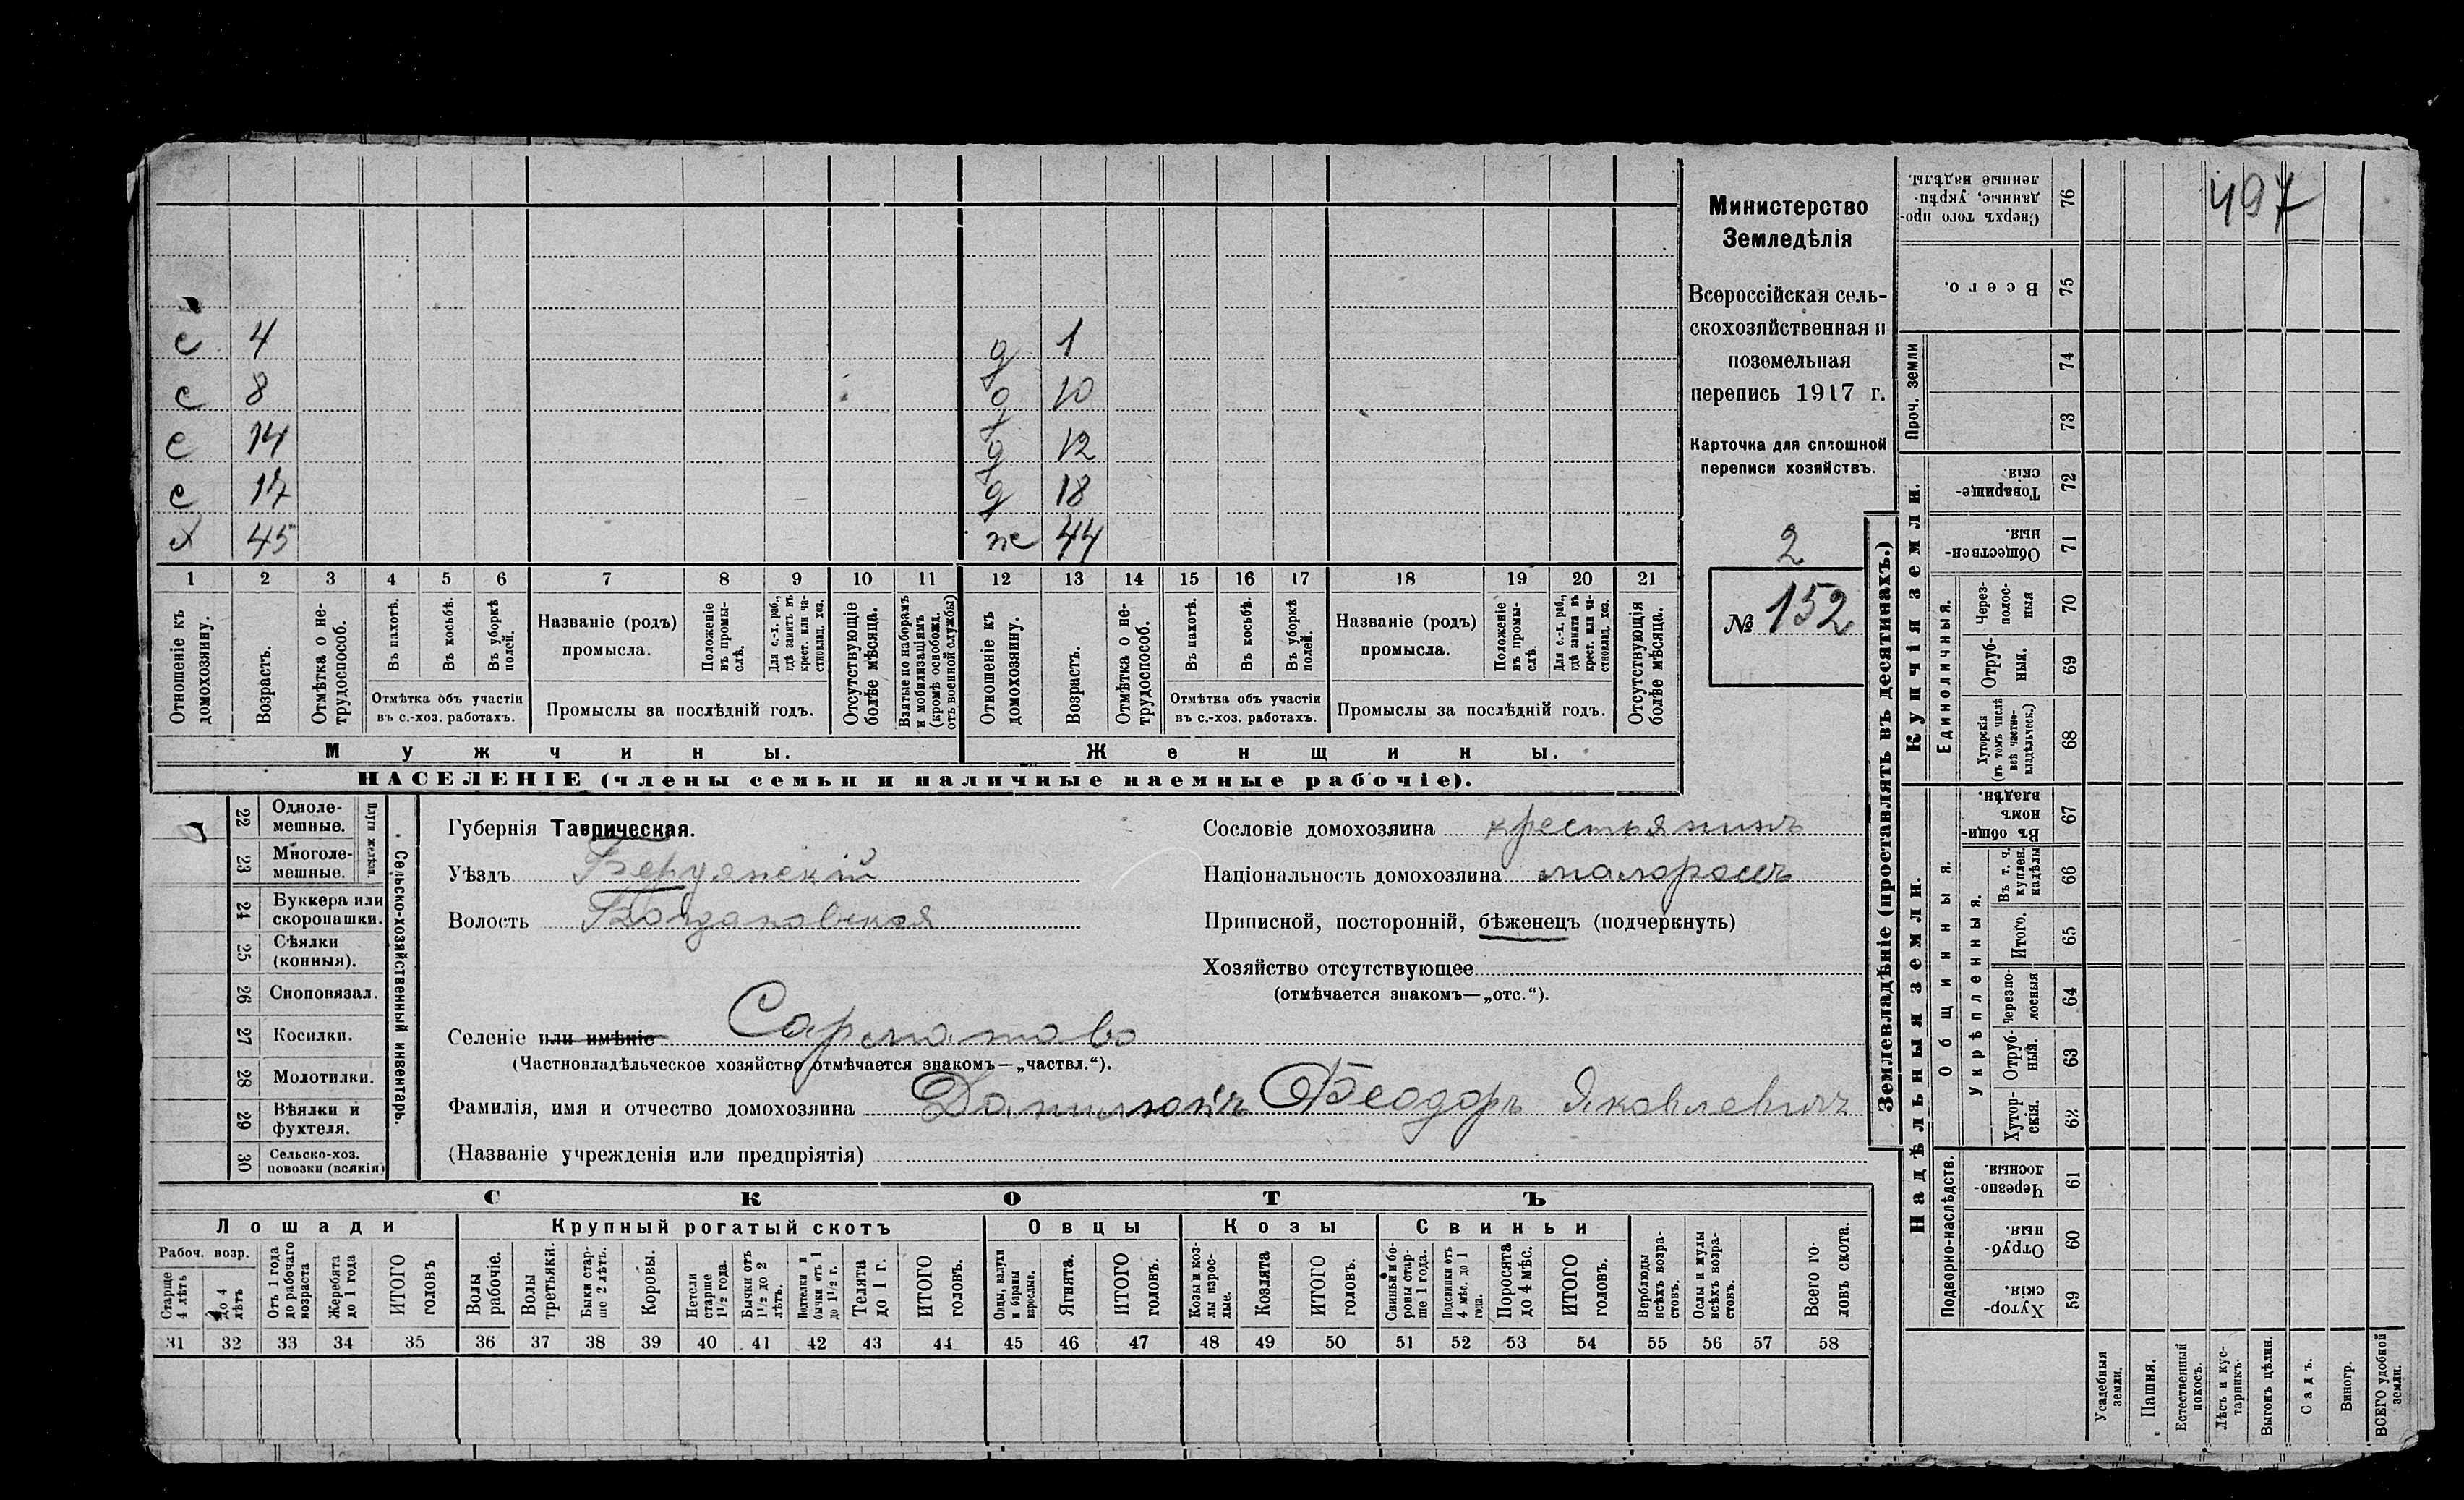 497
Министерство
Земледѣлія
Всероссійская сель-
скохозяйственная и
поземельная
перепись 1917 г.
Карточка для сплошной
переписи хозяйствъ.
2
№ 152
с 4 д 1
с 8 д 10
с 14 д 12
с 17 д 18
х 45 ж 44
1 2 3 4 5 6 7 8 9 10 11 12 13 14 15 16 17 18 19 20 21
Отношеніе къ домохозяину.
Возрастъ.
Отмѣтка о не-
трудоспособ.
Въ пахотѣ.
Въ косьбѣ.
Въ уборкѣ
полей.
Отмѣтка объ участіи
въ с.-хоз. работахъ.
Названіе (родъ)
промысла.
Положеніе
въ промы-
слѣ.
Для с.-х. раб.,
гдѣ занятъ въ
крест. или ча-
стновлад. хоз.
Промыслы за послѣдній годъ.
Отсутствующіе
болѣе мѣсяца.
Взятые по наборамъ
и мобилизаціямъ
(кромѣ освобожд.
отъ военной службы)
Отношеніе къ
домохозяину.
Возрастъ.
Отмѣтка о не-
трудоспособ.
Въ пахотѣ.
Въ косьбѣ.
Въ уборкѣ
полей.
Отмѣтка объ участіи
въ с.-хоз. работахъ.
Названіе (родъ)
промысла.
Положеніе
въ промы-
слѣ.
Для с.-х. раб.,
гдѣ занята въ
крест. или ча-
стновлад. хоз.
Промыслы за послѣдній годъ.
Отсутствующія
болѣе мѣсяца.
Мужчины.
Женщины.
НАСЕЛЕНІЕ (члены семьи и наличные наемные рабочіе).
22 Одноле-
мешные.
23 Многоле-
мешные.
Плуги желѣзн.
24 Буккера или
скоропашки.
25 Сѣялки
(конныя).
26 Сноповязал.
27 Косилки.
28 Молотилки.
29 Вѣялки и
фухтеля.
30 Сельско-хоз.
повозки (всякія)
Сельско-хозяйственный инвентарь.
Губернія Таврическая.
Уѣздъ Бердянскій
Волость Богдановская
Сословіе домохозяина крестьянинъ
Національность домохозяина малороссъ
Приписной, посторонній, бѣженецъ (подчеркнуть)
Хозяйство отсутствующее
(отмѣчается знакомъ—„отс.“).
Селеніе или имѣніе Сарматово
(Частновладѣльческое хозяйство отмѣчается знакомъ—„частвл.“).
Фамилія, имя и отчество домохозяина Данилюкъ Феодоръ Яковлевичъ
(Названіе учрежденія или предпріятія)
СКОТЪ
Лошади
Крупный рогатый скотъ
Овцы
Козы
Свиньи
Рабоч. возр.
Старше
4 лѣтъ
до 4
лѣтъ
Отъ 1 года
до рабочаго
возраста
Жеребята
до 1 года
ИТОГО
головъ
Волы
рабочіе.
Волы
третьяки.
Быки стар-
ше 2 лѣтъ.
Коровы.
Нетели
старше
1½ года.
Бычки отъ
1½ до 2
лѣтъ.
Подтелки и
бычки отъ 1
до 1½ г.
Телята
до 1 г.
ИТОГО
головъ.
Овцы, валухи
и бараны
взрослые.
Ягнята.
ИТОГО
головъ.
Козы и коз-
лы взрос-
лые.
Козлята
ИТОГО
головъ.
Свиньи и бо-
ровы стар-
ше 1 года.
Подсвинки отъ
4 мѣс. до 1
года.
Поросята
до 4 мѣс.
ИТОГО
головъ.
Верблюды
всѣхъ возра-
стовъ.
Ослы и мулы
всѣхъ возра-
стовъ.
Всего го-
ловъ скота.
31 32 33 34 35 36 37 38 39 40 41 42 43 44 45 46 47 48 49 50 51 52 53 54 55 56 57 58
Землевладѣніе (проставлять въ десятинахъ.)
Купчія земли.
Надѣльныя земли.
Сверхъ того про-
данные, укрѣп-
ленные надѣлы.
76
Всего.
75
Проч. земли
74
73
Товарище-
скія.
72
Обществен-
ныя.
71
Единоличныя.
Через-
полос-
ныя
70
Отруб-
ныя.
69
Хуторскія
(въ томъ числѣ
всѣ частно-
владѣльческ.)
68
Общинныя.
Въ общин-
номъ
владѣн.
67
Укрѣпленныя.
Въ т. ч.
куплен.
надѣлы
66
Итого.
65
Черезпо-
лосныя
64
Отруб-
ныя.
63
Хутор-
скія.
62
Подворно-наслѣдств.
Черезпо-
лосныя.
61
Отруб-
ныя.
60
Хутор-
скія.
59
Усадебныя
земли.
Пашня.
Естественный
покосъ.
Лѣсъ и кус-
тарникъ.
Выгонъ цѣлин.
Садъ.
Виногр.
ВСЕГО удобной
земли.